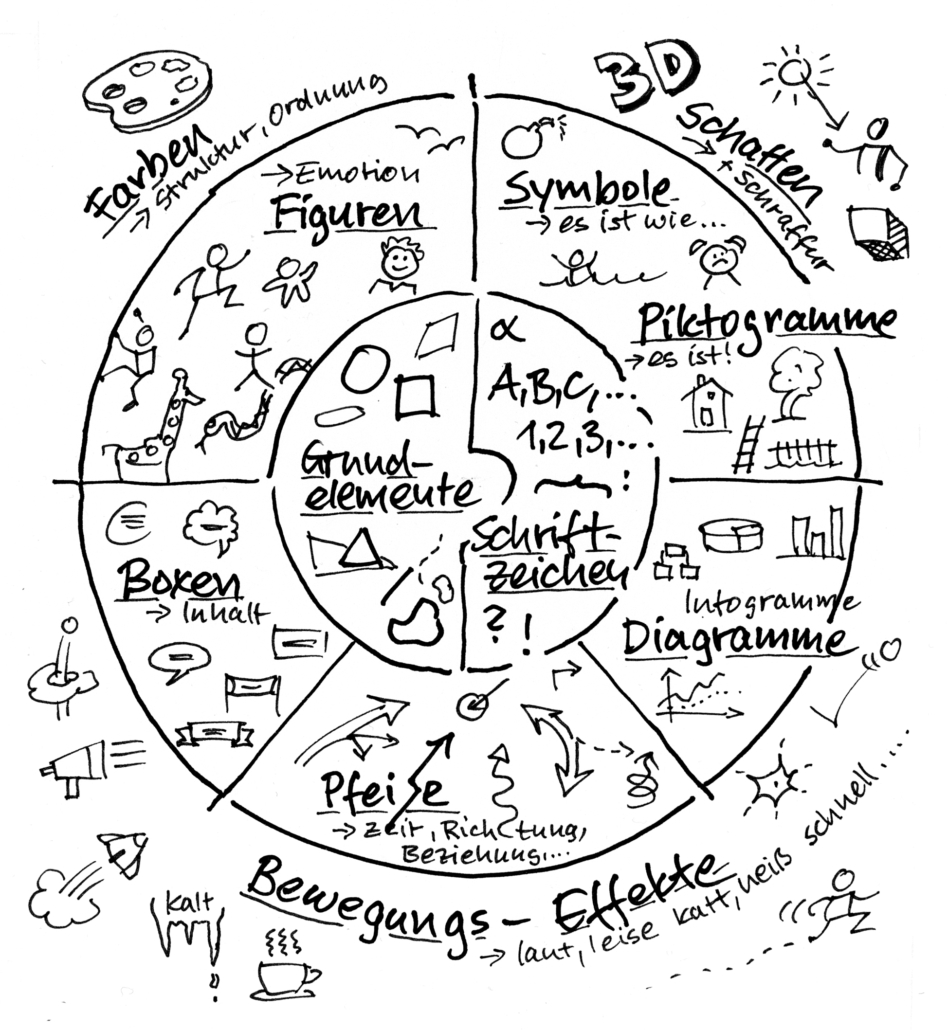 3D
Farben
→ Struktur, Ordnung
Schatten
→ + Schraffur
→ Emotion
Figuren
Symbole
→ es ist wie...
Piktogramme
→ es ist!
α
A, B, C, ...
1, 2, 3, ...
Grund-
elemente
Schrift-
zeichen
? !
€
Boxen
→ Inhalt
Infogramme
Diagramme
Pfeile
→ Zeit, Richtung,
Beziehung,...
Bewegungs-Effekte
→ laut, leise kalt, heiß schnell....
kalt